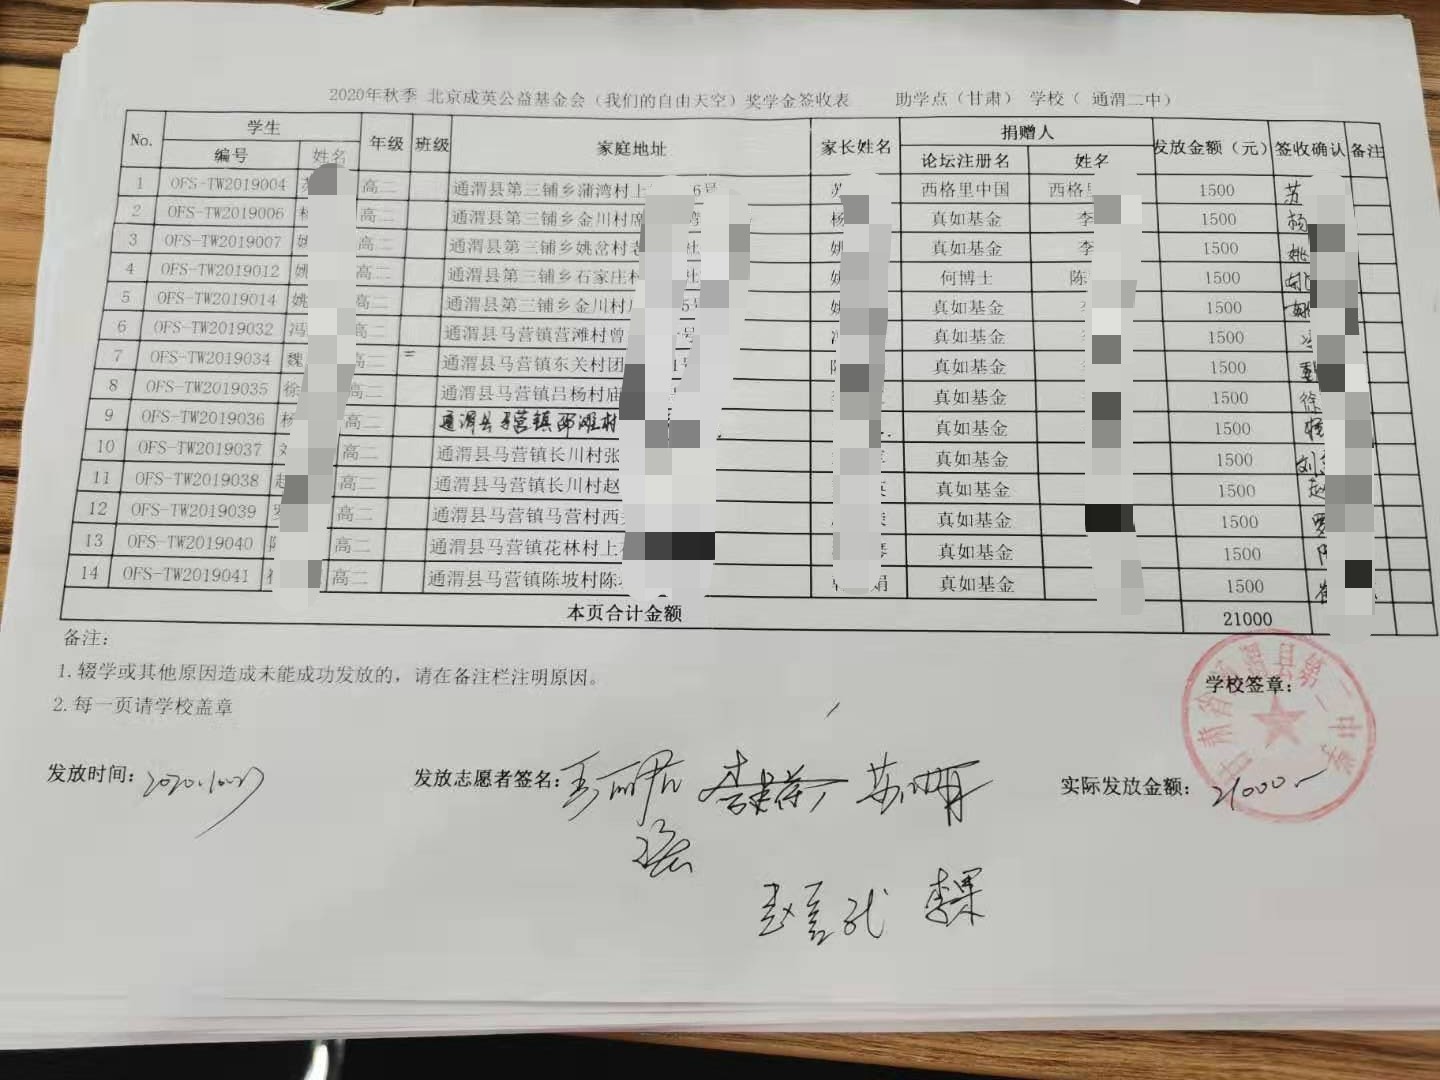 2020年秋季 北京成英公益基金会（我们的自由天空）奖学金签收表 助学点（甘肃） 学校（ 通渭二中）
No. 学生 年级 班级 家庭地址 家长姓名 捐赠人 发放金额（元） 签收确认 备注
编号 姓名 论坛注册名 姓名
1 OFS-TW2019004 高二 通渭县第三铺乡蒲湾村上 6号 苏 西格里中国 西格里 1500 苏
2 OFS-TW2019006 高二 通渭县第三铺乡金川村 杨 真如基金 李 1500 杨
3 OFS-TW2019007 姚 高二 通渭县第三铺乡姚岔村 社 姚 真如基金 李 1500 姚
4 OFS-TW2019012 姚 高二 通渭县第三铺乡石家庄村 社 何博士 陈 1500 姚
5 OFS-TW2019014 姚 高二 通渭县第三铺乡金川村 5号 真如基金 1500 姚
6 OFS-TW2019032 冯 高二 通渭县马营镇营滩村曾 号 真如基金 1500
7 OFS-TW2019034 魏 高二 二 通渭县马营镇东关村团 1号 真如基金 1500
8 OFS-TW2019035 徐 高二 通渭县马营镇吕杨村庙 真如基金 1500 徐
9 OFS-TW2019036 杨 高二 通渭县马营镇邵滩村 真如基金 1500
10 OFS-TW2019037 高二 通渭县马营镇长川村张 真如基金 1500 刘
11 OFS-TW2019038 赵 高二 通渭县马营镇长川村赵 真如基金 1500 赵
12 OFS-TW2019039 罗 高二 通渭县马营镇马营村西 真如基金 1500 罗
13 OFS-TW2019040 高二 通渭县马营镇花林村上 琴 真如基金 1500
14 OFS-TW2019041 高二 通渭县马营镇陈坡村陈 娟 真如基金 1500
本页合计金额 21000
备注：
1.辍学或其他原因造成未能成功发放的，请在备注栏注明原因。
2.每一页请学校盖章
学校签章：
甘肃省通渭县第二中学
发放时间：2020.10.27 发放志愿者签名： 实际发放金额：21000